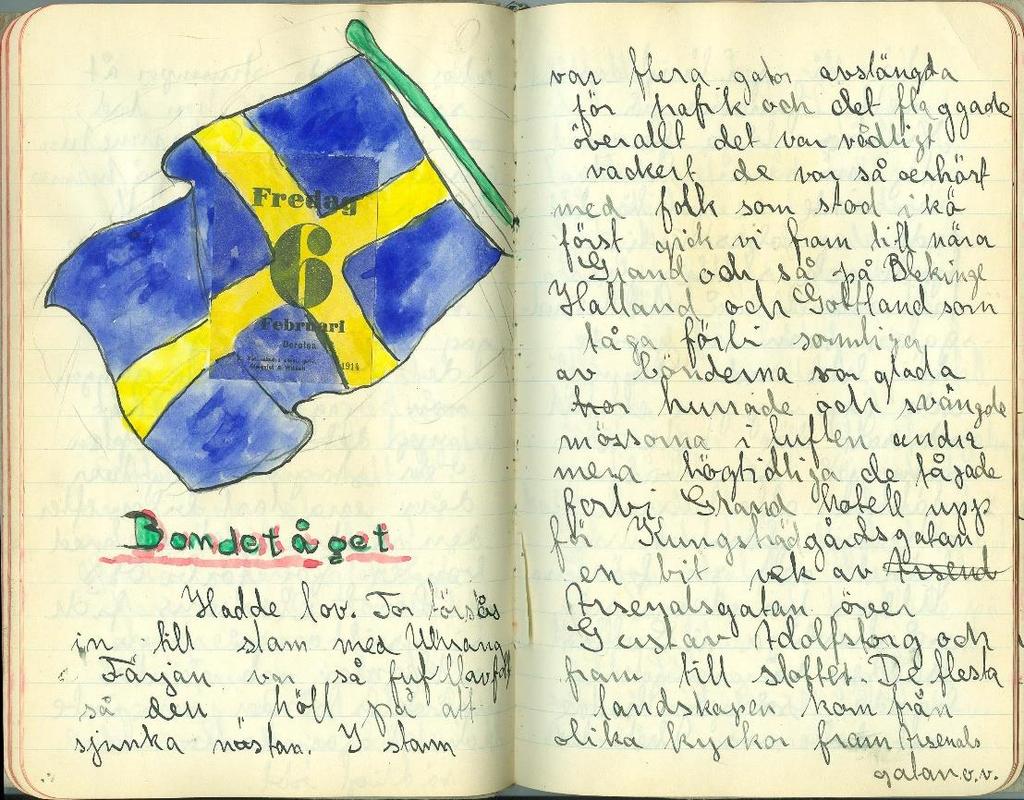 Fredag
6
Februari
Dorotea
1914
Bondetåget
Hadde lov. For först
in till stam med Uhrang
Färjan var så full av folk
så den höll på att
sjunka nästan. I stam
var flera gator avstängda
för trafik och det flaggade
överallt det var vådligt
vackert de var så oerhört
med folk som stod i kö
först gick vi fram till nära
Grand och så på Blekinge
Halland och Gottland som
tåga förbi somliga
av bönderna var glada
hurrade och svängde
mössorna i luften andra
mera högtidliga de tågade
förbi Grand hotell upp
för Kungsträdgårdsgatan
en bit vek av Arsend
Arsenalsgatan över
Gustav Adolfstorg och
fram till slottet De flesta
landskapen kom från
olika kyrkor fram Arsenals
gatan o.v.